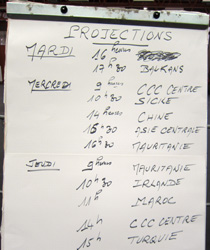 PROJECTIONS
MARDI 16 heures
17 h 30 BALKANS
MERCREDI 9 heures CCC CENTRE
10 h 30 SICILE
14 heures CHINE
15 h 30 ASIE CENTRALE
16 h 30 MAURITANIE
JEUDI 9 heures MAURITANIE
10 h 30 IRLANDE
11 h MAROC
14 h CCC CENTRE
15 h TURQUIE